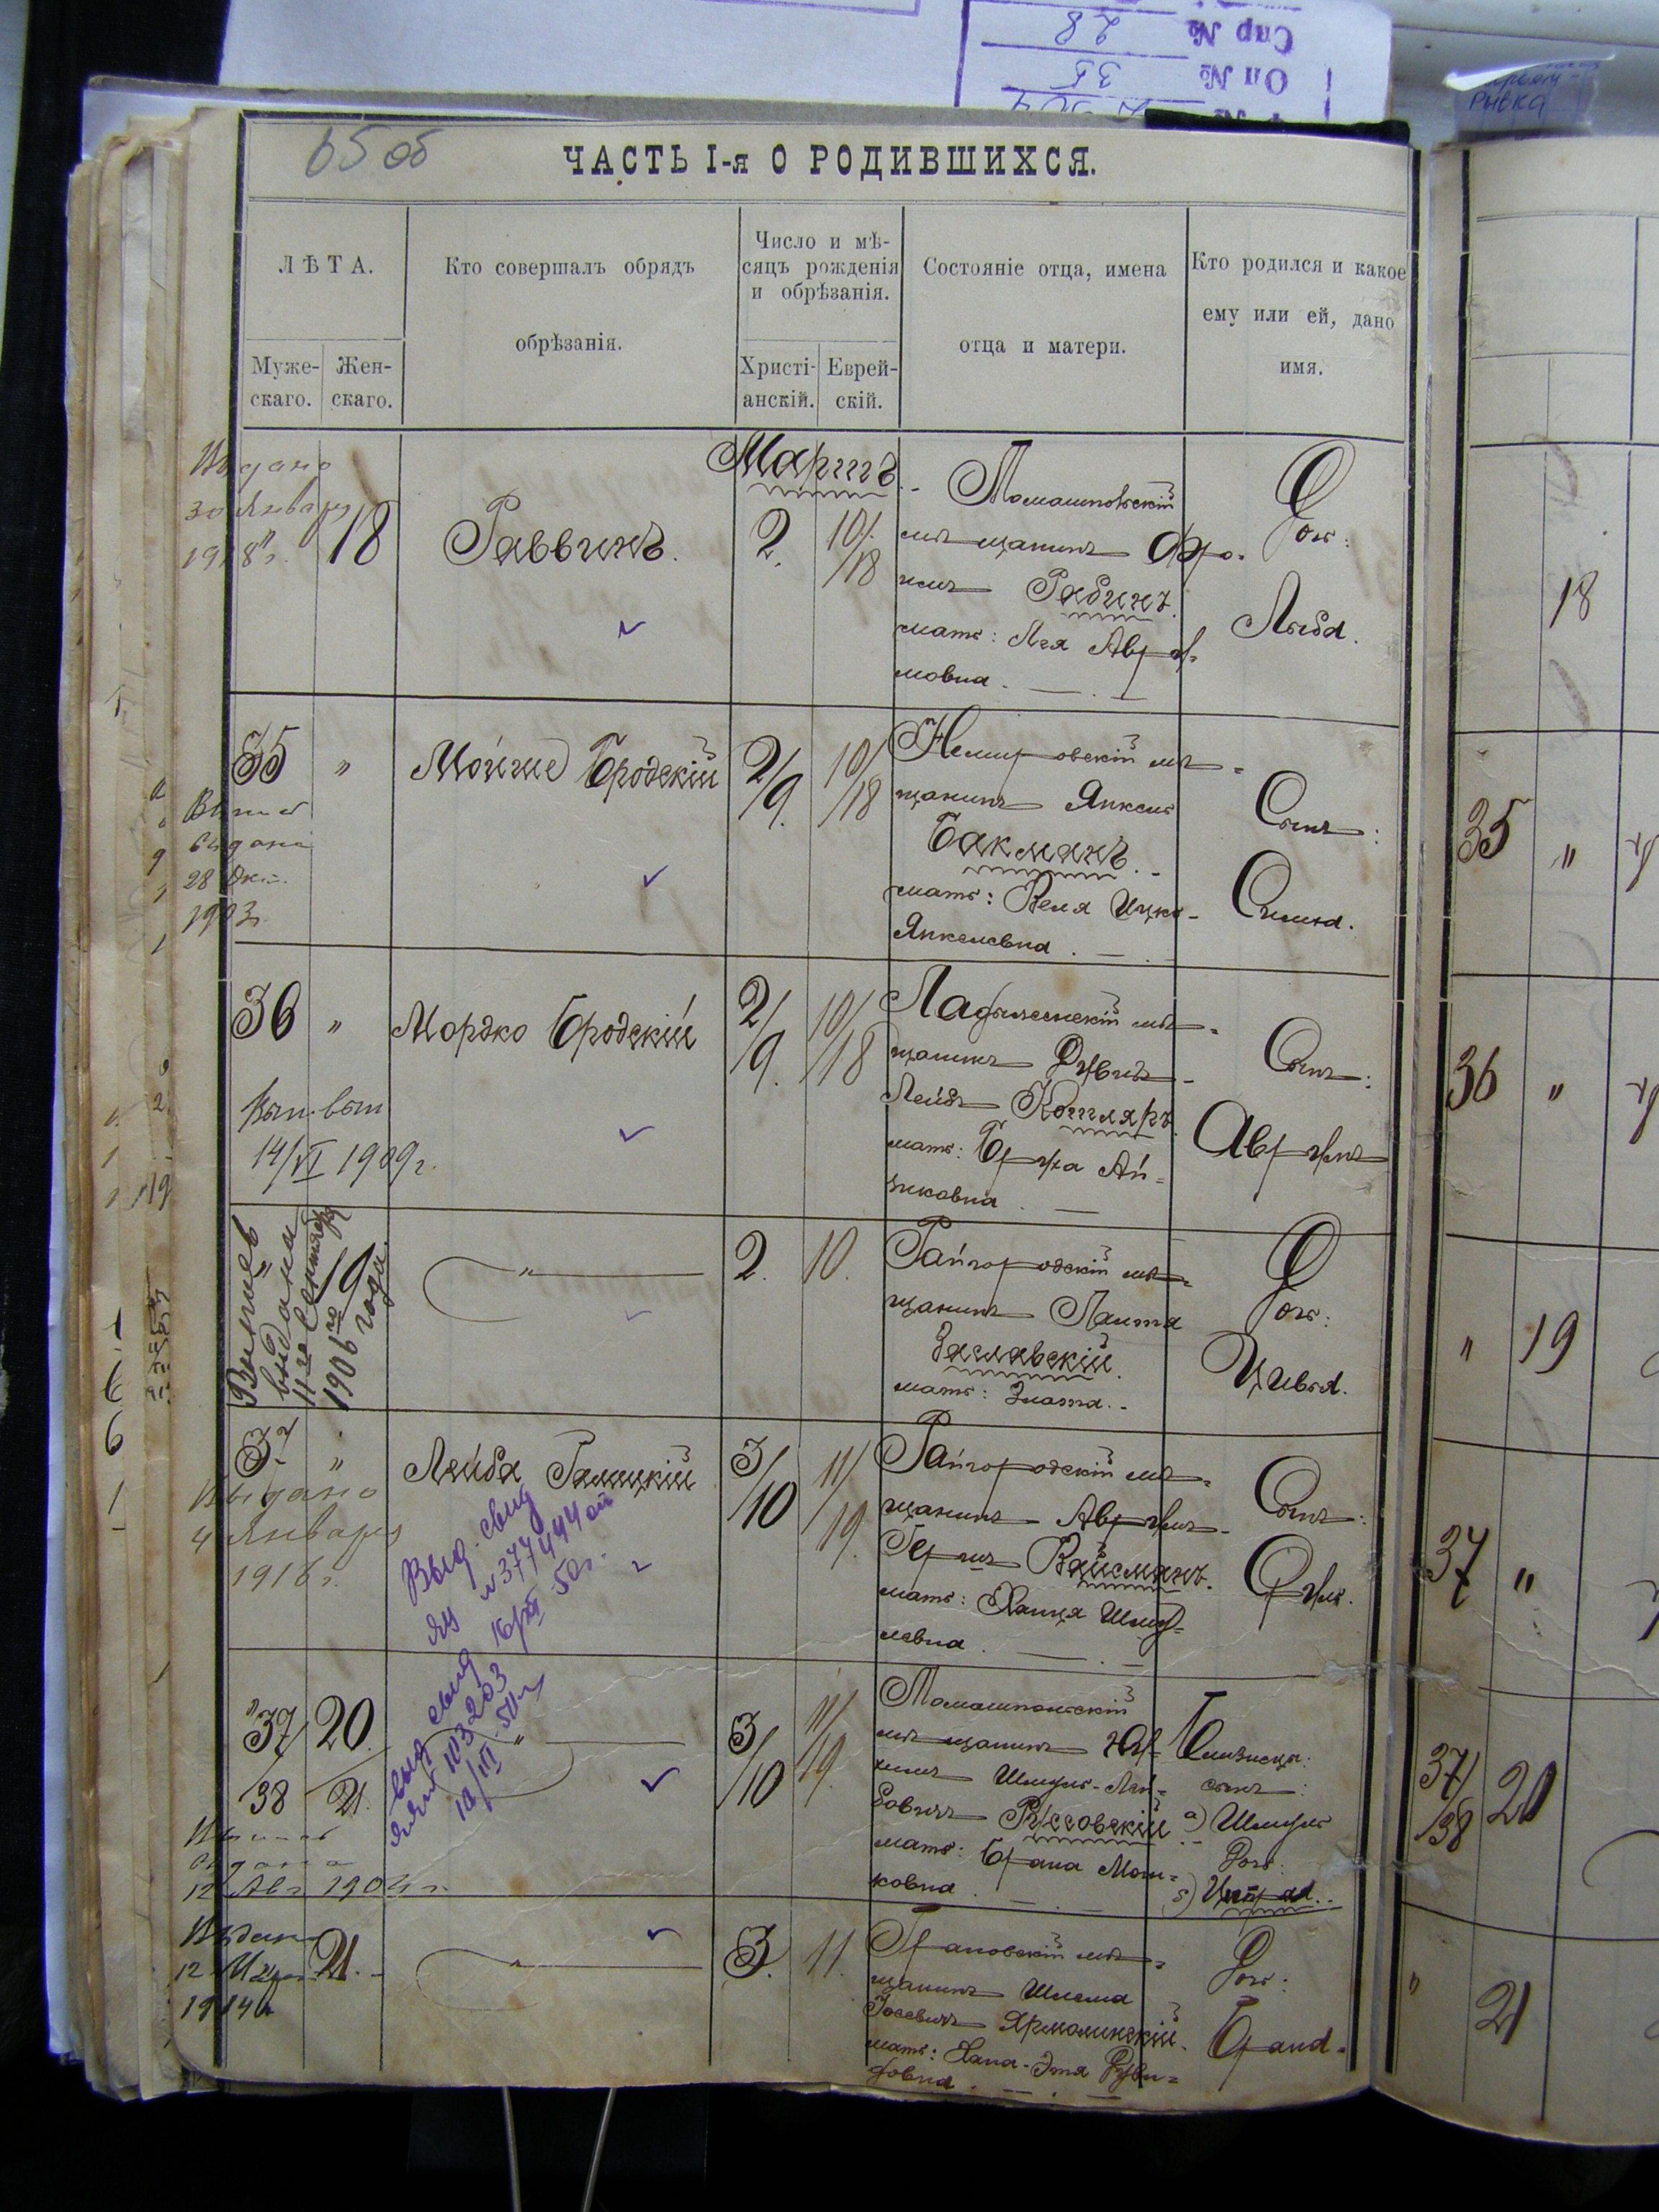 Спр № 28
Оп № 35
Рывка
65 об
ЧАСТЬ I-я О РОДИВШИХСЯ.
ЛѢТА.
Муже-
скаго.
Жен-
скаго.
Кто совершалъ обрядъ
обрѣзанія.
Число и мѣ-
сяцъ рожденія
и обрѣзанія.
Христі-
анскій.
Еврей-
скій.
Состояніе отца, имена
отца и матери.
Кто родился и какое
ему или ей, дано
имя.
Мартъ
Выдано
30 Января
1918 г.
"
18
Раввинъ.
2.
10/
/18
Томашпольскій
мѣщанинъ Фро-
имъ Рабинъ.
мать: Лея Авра-
мовна.
Дочь:
Люба.
35
"
Выпись
выдана
28 Окт.
1903г.
Мойше Бродскій
2/
/9.
10/
/18
Немировскій мѣ-
щанинъ Янкель
Бакманъ.
мать: Веля Ицко-
Янкелевна.
Сынъ:
Симха.
36
"
Вып. выд
14/VI 1909г.
Мордко Бродскій
2/
/9.
10/
/18
Ладыженскій мѣ-
щанинъ Дувидъ-
Лейбъ Котляръ.
мать: Бруха Ай-
зиковна.
Сынъ:
Аврумъ
"
19
Выпись
выдана
11го Сентября
1906го года.
"
2.
10.
Райгородскій мѣ-
щанинъ Панта
Заславскій.
мать: Злата.
Дочь:
Цивья.
37
"
Выдано
4 Января
1916 г.
Лейба Галицкій
Выд. свид
ЯЦ № 377444
16/XI 50г.
3/
/10
11/
/19.
Райгородскій мѣ-
щанинъ Аврумъ-
Гершъ Вайсманъ.
мать: Ханця Шму-
левна.
Сынъ:
Сруль.
37/
/38
20.
21.
Выпись
выдана
12 Авг 1904 г.
выд свид
103203
10/III 50г
"
3/
/10
11/
/19.
Томашпольскій
мѣщанинъ
Шмуль-Лей-
бовичъ Руссовскій
мать: Брана Мош-
ковна.
Близнецы:
сынъ:
а) Шмуль
Дочь:
б)
Выдано
12
1914г
21.
"
3.
11.
Грановскій мѣ-
щанинъ Шлема
Іосевичъ Ярмолинскій.
мать: Хана-Этя Руви-
новна.
Дочь:
Брана.
18
35 "
36 "
" 19
37 "
37/
/38
20
" 21